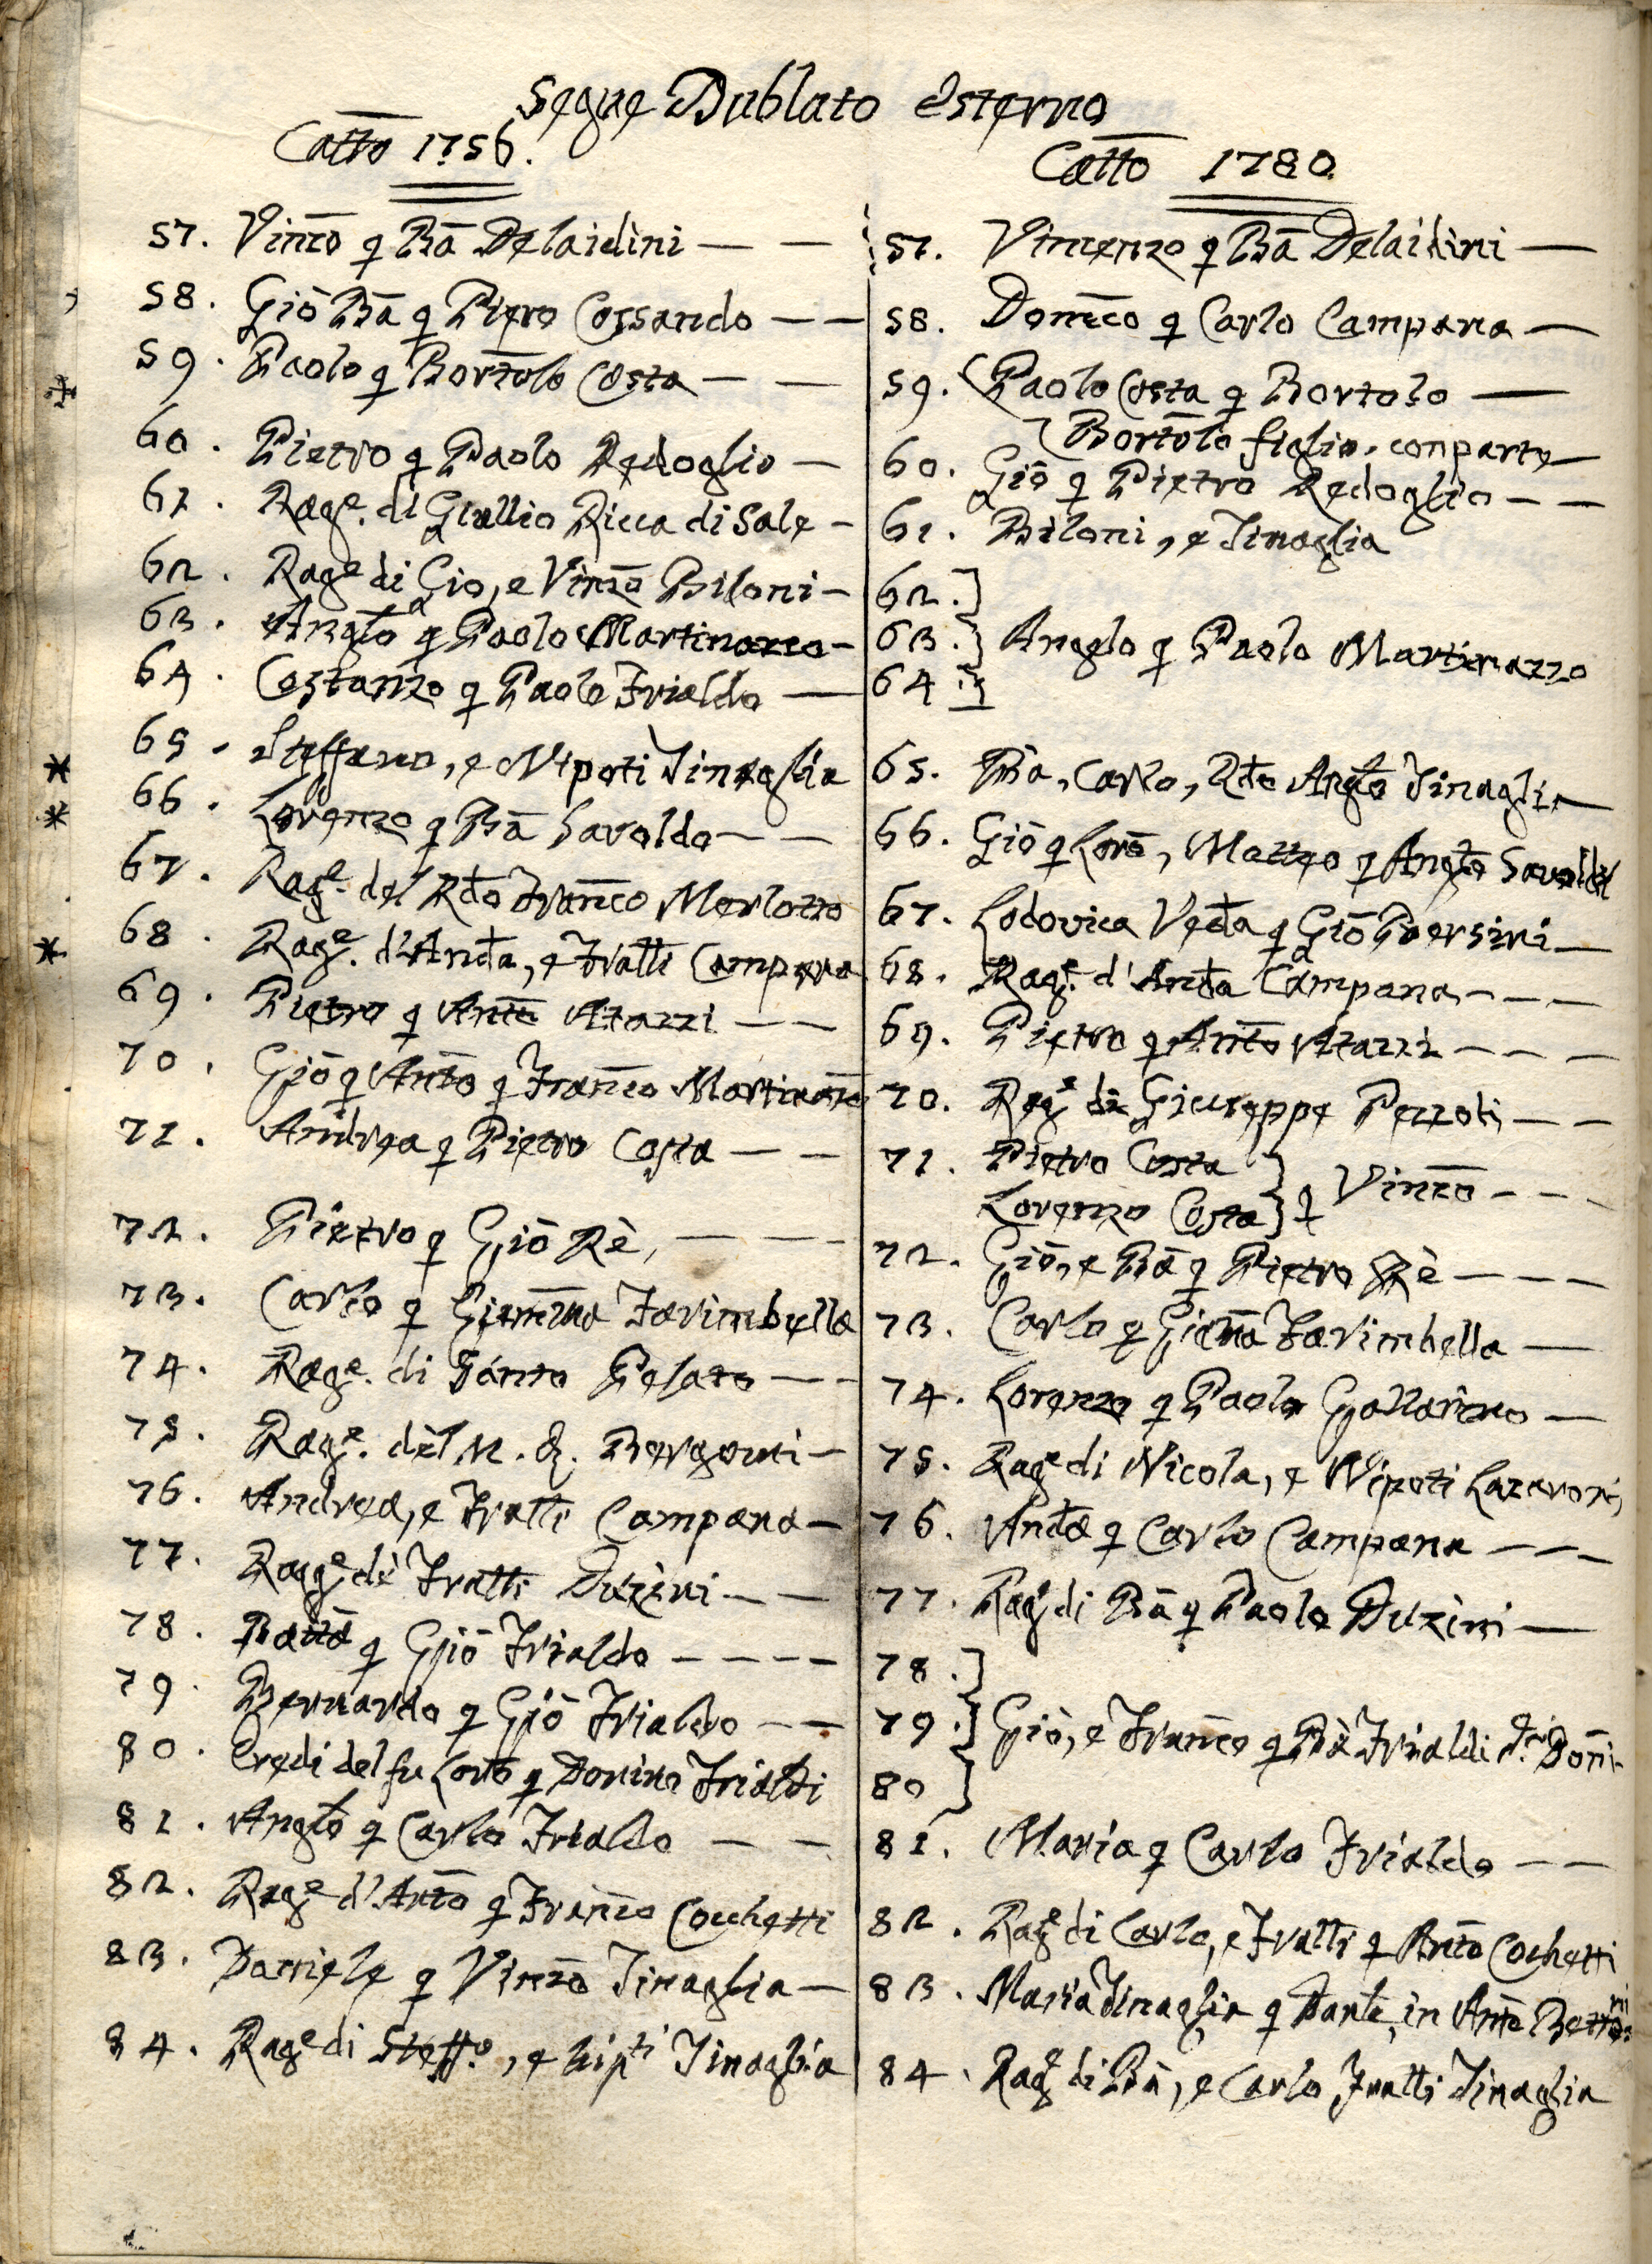 Segue Dublato esterno
Catto 1756.
57. Vinzo q Ba Delaidini — —
58. Gio Ba q Piero Cossando — —
59. Paolo q Bortolo Costa — —
60. Pietro q Paolo Redoglio —
61. Rage. di Giullio Ricca di Sale —
62. Rage di Gio, e Vinzo Biloni —
63. Anglo q Paolo Martinazzo —
64. Costanzo q Paolo Frialdo —
65. Steffano, e Nipoti Tinaglia
66. Lorenzo q Ba Savoldo — —
67. Rage. del Rdo Franco Merlozzo
68. Rage. d'Anda, e Fratti Campana
69. Pietro q Anto Atazzi — —
70. Gio q Anto q Franco Martinazzo
71. Andrea q Pietro Costa — —
72. Pietro q Gio Rè, — — —
73. Carlo q Giamma Farimbella
74. Rage. di Santo Pesato — —
75. Rage. del N. Q. Bergomi —
76. Andrea, e Fratti Campana —
77. Rage de Fratti Duzini — —
78. Batta q Gio Frialdo — — — —
79. Bernardo q Gio Frialdo — —
80. Eredi del fu Loro q Donino Frialdi
81. Anglo q Carlo Frialdo — —
82. Rage d'Anto q Franco Cocchetti
83. Daniele q Vinzo Tinaglia —
84. Rage di Steffo, e Nipti Tinaglia
Catto 1780.
57. Vincenzo q Ba Delaidini —
58. Domco q Carlo Campana —
59. Paolo Costa q Bortolo —
Bortolo figlio, conparte —
60. Gio q Pietro Redoglio — —
61. Biloni, e Tinaglia
62.
63. Angelo q Paolo Martinazzo
64.
65. Ba, Carlo, Rdo Anglo Tinaglia —
66. Gio q Loro, Matteo q Anglo Savoldi
67. Lodovica Veda q Gio Persini —
68. Rage. d'Anda Campana — — —
69. Pietro q Anto Atazzi — — —
70. Rage di Giuseppe Pezzoti — —
71. Pietro Costa
Lorenzo Costa q Vinzo — — —
72. Gio, e Ba q Pietro Rè — — —
73. Carlo q Giama Farimbella —
74. Lorenzo q Paolo Gallarino —
75. Rage di Nicola, e Nipoti Lazaroni
76. Anda q Carlo Campana — — —
77. Rage di Ba q Paolo Duzini —
78.
79. Gio, e Franco q Ba Frialdi
80
81. Maria q Carlo Frialdo — —
82. Rage di Carlo, e Fratti q Anto Cochetti
83. Maria Tinaglia q Danle, in Anto
84. Rage di Ba, e Carlo Fratti Tinaglia